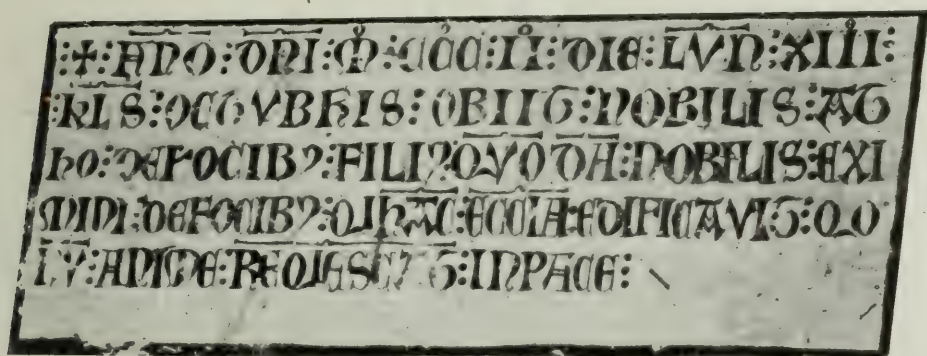 :✠: ANO: DNI: M: CCC: II: DIE: LVN: XIII:
:KLS: OCTVBRIS: OBIIT: NOBILIS: AT
HO: DEFOCIB9: FILI9: QVO DA: NOBILIS: EXI
MINI: DEFOCIB9: QI HAC: ECCIA: EDIFICAVIT: QO
IV: ANIME: REQIESCAT: INPACE: